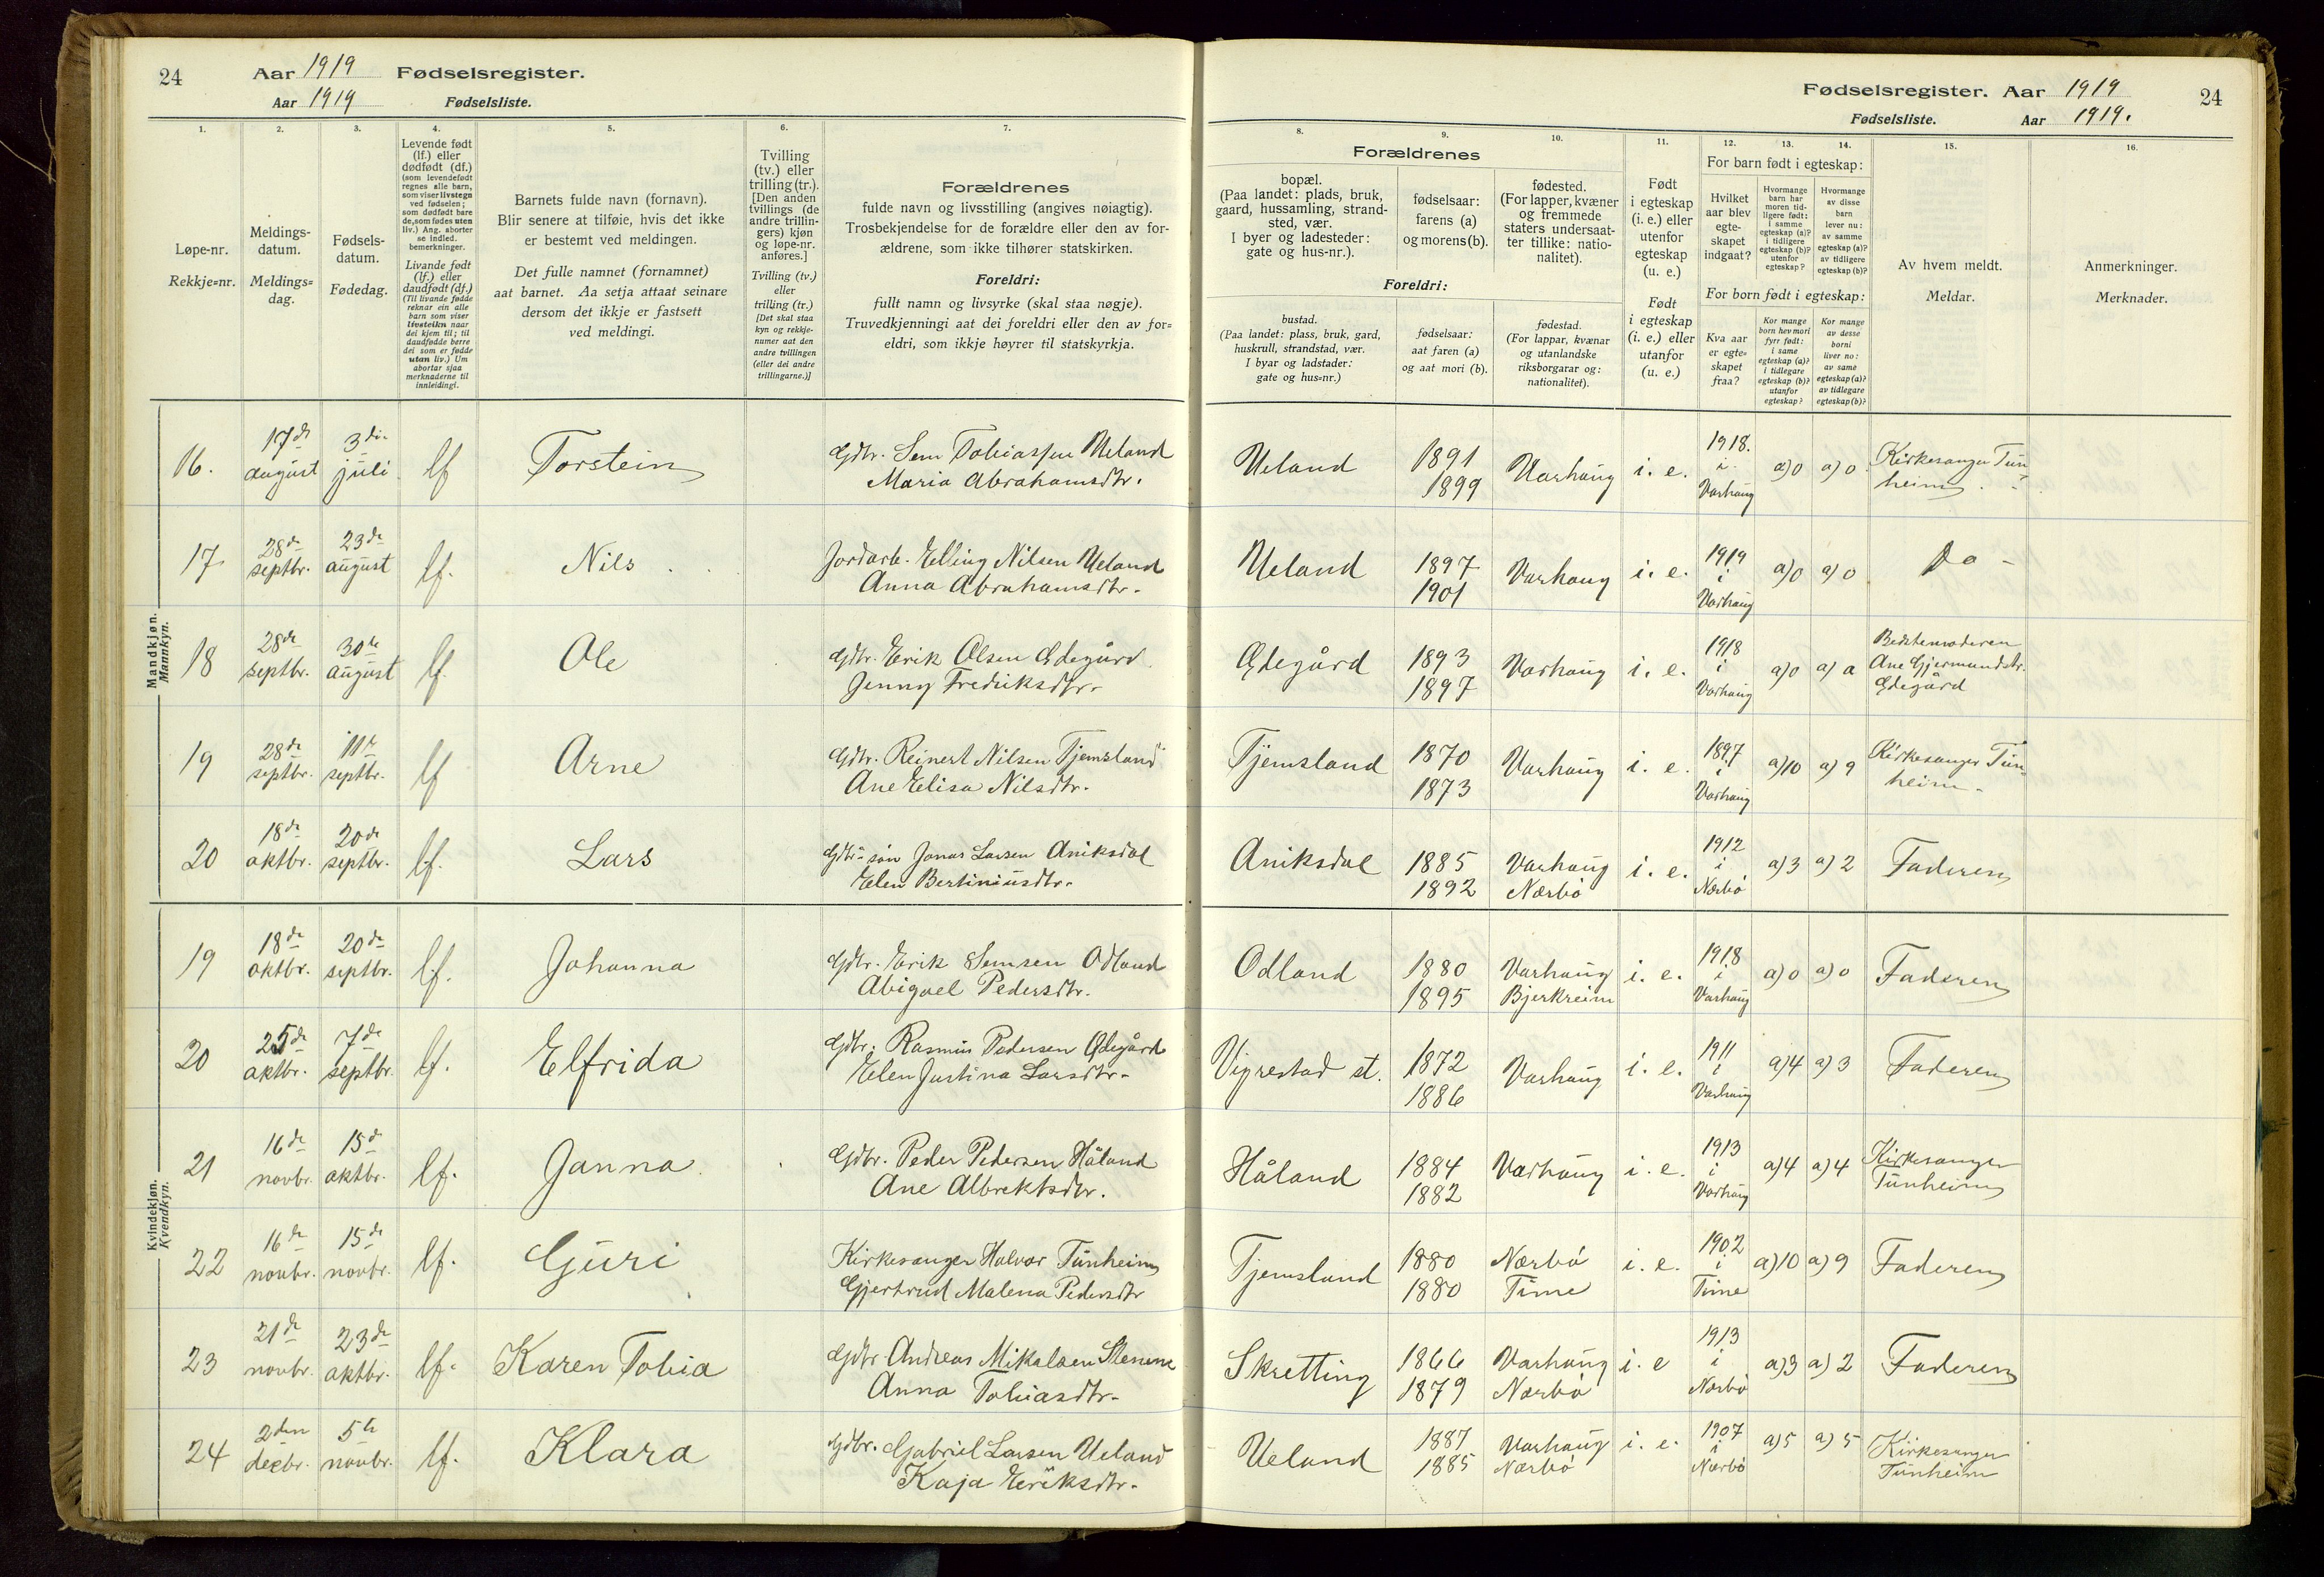 24 Aar 1919 Fødselsregister.
Aar 1919 Fødselsliste.
Fødselsregister. Aar 1919 24
Fødselsliste. Aar 1919.
1. 2. 3. 4. 5. 6. 7.
Løpe-nr.
Rekkje=nr.
Meldings-
datum.
Meldings=
dag.
Fødsels-
datum.
Fødedag.
Levende født
(lf.) eller
dødfødt (df.)
(som levendefødt
regnes alle barn,
som viser livstegn
ved fødselen;
som dødfødt bare
de, som fødes uten
liv.) Ang. aborter
se indled.
bemerkninger.
Livande født
(lf.) eller
daudfødt (df.)
(Til livande fødde
reknar ein alle
barn som viser
livsteikn naar
dei kjem til; til
daudfødde berre
dei som er fødde
utan liv.) Um
abortar sjaa
merknaderne til
innleidingi.
Barnets fulde navn (fornavn).
Blir senere at tilføie, hvis det ikke
er bestemt ved meldingen.
Det fulle namnet (fornamnet)
aat barnet. Aa setja attaat seinare
dersom det ikkje er fastsett
ved meldingi.
Tvilling
(tv.) eller
trilling (tr.).
[Den anden
tvillings (de
andre trillin-
gers) kjøn
og løpe-nr.
anføres.]
Tvilling (tv.)
eller
trilling (tr.)
[Det skal staa
kyn og rekkje-
numer aat den
andre tvillingen
(eller dei andre
trillingarne.)]
Forældrenes
fulde navn og livsstilling (angives nøiagtig).
Trosbekjendelse for de forældre eller den av for-
ældrene, som ikke tilhører statskirken.
Foreldri:
fullt namn og livsyrke (skal staa nøgje).
Truvedkjenningi aat dei foreldri eller den av for=
eldri, som ikkje høyrer til statskyrkja.
8. 9. 10. 11. 12. 13. 14. 15. 16.
Forældrenes
bopæl.
(Paa landet: plads, bruk,
gaard, hussamling, strand-
sted, vær.
I byer og ladesteder:
gate og hus-nr.).
fødselsaar:
farens (a)
og morens (b).
fødested.
(For lapper, kvæner
og fremmede
staters undersaat-
ter tillike: natio-
nalitet).
Foreldri:
bustad.
(Paa landet: plass, bruk, gard,
huskrull, strandstad, vær.
I byar og ladstader:
gate og hus=nr.)
fødselsaar:
aat faren (a)
og aat mori (b).
fødestad.
(For lappar, kvænar
og utanlandske
riksborgarar og:
nationalitet).
Født
i egteskap
(i. e.) eller
utenfor
egteskap
(u. e.)
Født
i egteskap
(i. e.) eller
utanfor
(u. e.)
For barn født i egteskap:
Hvilket
aar blev
egte-
skapet
indgaat?
Hvormange
barn har
moren tid-
ligere født:
i samme
egteskap (a)?
i tidligere
egteskap (b)?
utenfor
egteskap?
Hvormange
av disse
barn
lever nu:
av samme
egteskap (a)?
av tidligere
egteskap (b)?
For born født i egteskap:
Kva aar
er egte=
skapet
fraa?
Kor mange
born hev mori
fyrr født:
i same
egteskap (a)?
i tidlegare
egteskap (b)?
utanfor
egteskap?
Kor mange
av desse
borni
liver no:
av same
egteskap (a)?
av tidlegare
egteskap (b)?
Av hvem meldt.
Meldar.
Anmerkninger.
Merknader.
Mandkjøn.
Mannkyn.
16. 17de august 3die juli lf Torstein Gdbr. Sem Tobiassen Ueland
Maria Abrahamsdtr. Ueland 1891 1899 Varhaug i. e. 1918. i Varhaug a) 0 a) 0 Kirkesanger Tun
heim.
17 28de septbr. 23de august lf. Nils Jordarb. Elling Nilsen Ueland
Anna Abrahamsdtr. Ueland 1897 1901 Varhaug i. e. 1919 i Varhaug a) 0 a) 0 Do -
18 28de septbr. 30te august lf. Ole Gdbr. Erik Olsen Ødegård
Jenny Fredriksdtr. Ødegård 1893 1897 Varhaug i. e. 1918 i Varhaug a) 0 a) a Bedstemoderen
Ane Gjermundsdtr.
Ødegård
19 28de septbr. 11te septbr. lf Arne Gdbr. Reinert Nilsen Tjemsland
Ane Elisa Nilsdtr. Tjemsland 1870 1873 Varhaug i. e. 1897 i Varhaug a) 10 a) 9 Kirkesanger Tun-
heim.
20 18de oktbr. 20de septbr. lf. Lars Gdbr-søn Jonas Larsen Aniksdal
Elen Bertiniusdtr. Aniksdal 1885 1892 Varhaug Nærbø i. e. 1912 i Nærbø a) 3 a) 2 Faderen
Kvindekjøn.
Kvendkyn.
19 18de oktbr. 20de septbr. lf. Johanna Gdbr. Erik Semsen Odland
Abigael Pedersdtr. Odland 1880 1895 Varhaug Bjerkreim i. e. 1918 i Varhaug a) 0 a) 0 Faderen
20 25de oktbr. 7de septbr. lf. Elfrida Gdbr. Rasmus Pedersen Ødegård
Elen Justina Larsdtr. Vigrestad st. 1872 1886 Varhaug i. e. 1911 i Varhaug a) 4 a) 3 Faderen
21 16de novbr. 15de oktbr. lf. Janna Gdbr. Peder Pedersen Håland
Ane Albrektsdtr. Håland 1884 1882 Varhaug i. e. 1913 i Varhaug a) 4 a) 4 Kirkesanger
Tunheim
22 16de novbr. 15de novbr. lf. Guri Kirkesanger Halvor Tunheim
Gjertrud Malena Pedersdtr Tjemsland 1880 1880 Nærbø Time i. e. 1902 i Time a) 10 a) 9 Faderen
23 21de novbr. 23de oktbr. lf. Karen Tobia Gdbr Andreas Mikalsen
Anna Tobiasdtr. Skretting 1866 1879 Varhaug Nærbø i. e 1913 i Nærbø a) 3 a) 2 Faderen
24 2den decbr. 5te novbr. lf. Klara Gdbr. Gabriel Larsen Ueland
Kaja Eriksdtr. Ueland 1887 1885 Varhaug Nærbø i. e. 1907 i Nærbø a) 5 a) 5 Kirkesanger
Tunheim